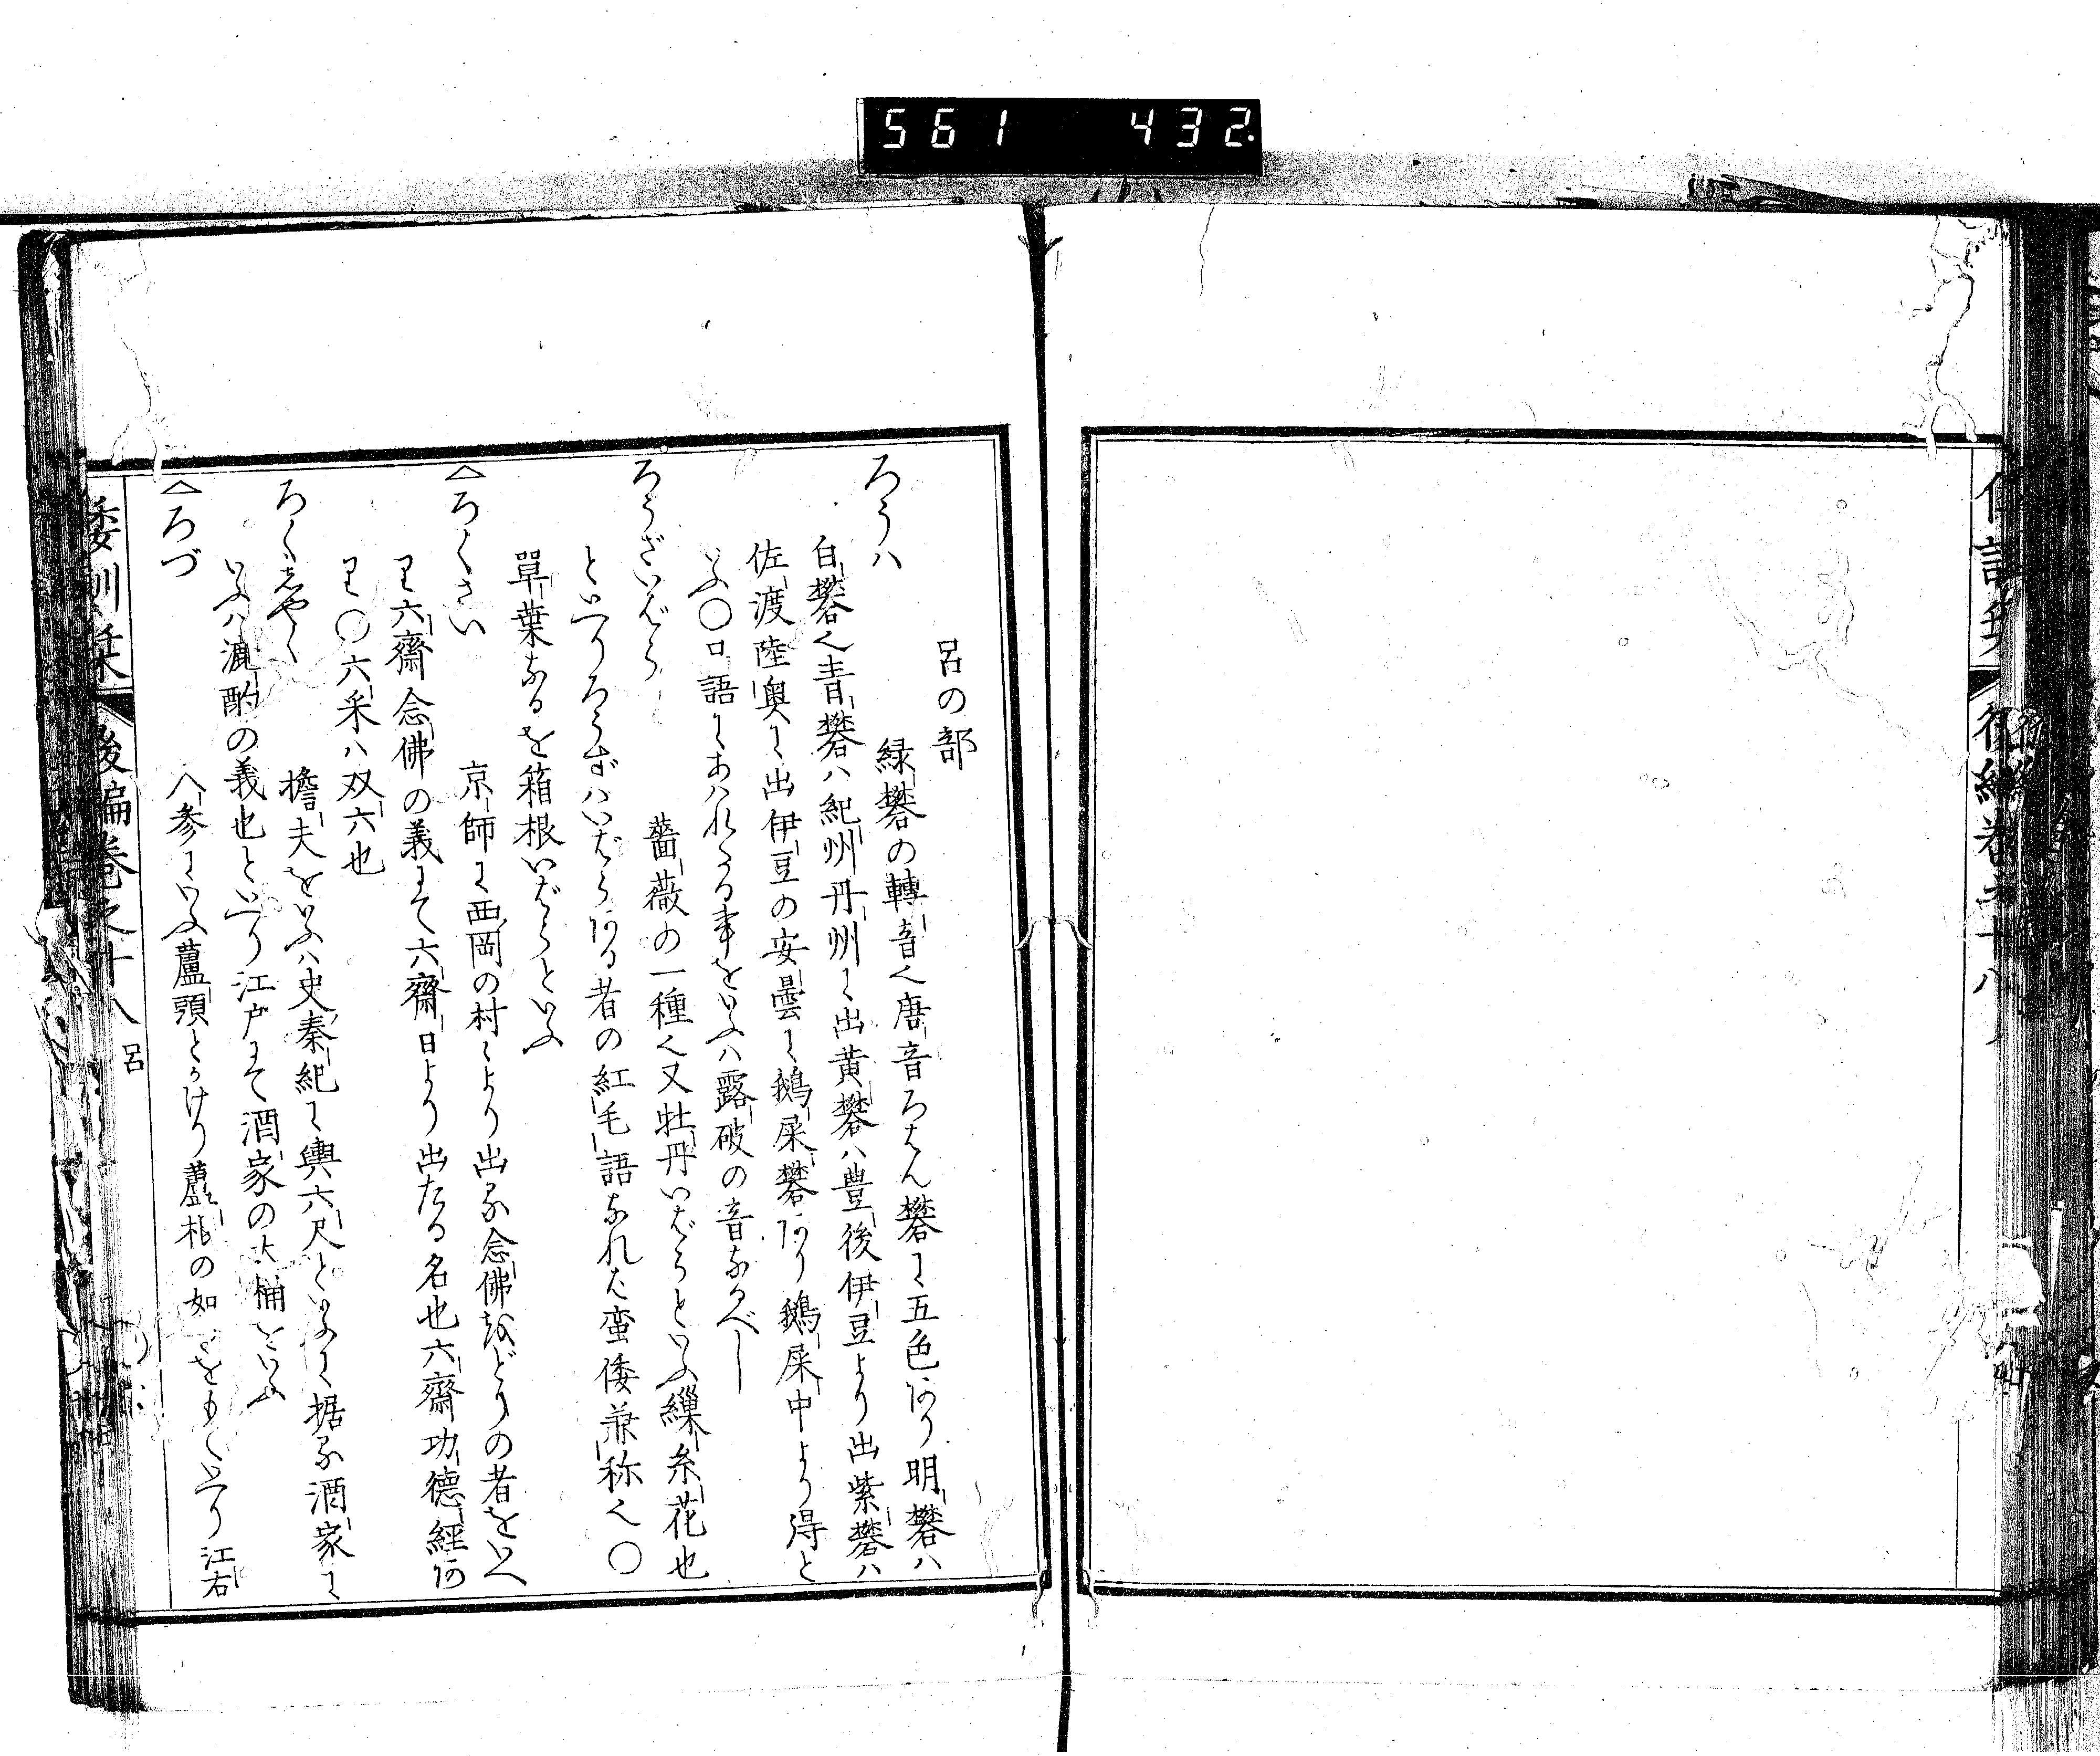 561 432
呂の部
ろうハ 緑礬の轉音く唐音ろはん礬に五色あり明礬ハ
白礬く青礬ハ紀州丹州に出黄礬ハ豊後伊豆より出紫礬ハ
佐渡陸奥に出伊豆の安曇に鵝屎礬あり鵝屎中より得と
いふ〇口語にあハれうる事をいふハ露破の音なるべし
ろうざいばら 薔薇の一種く又牡丹いばらといふ繅糸花也
といへりろうずハいばらある者の紅毛語なれハ蛮倭兼称く〇
單葉なるを箱根いばらといふ
△ろくさい 京師に西岡の村々より出る念佛をどりの者をいへ
り六齋念佛の義にて六齋日より出たる名也六齋功德經あ
り〇六采ハ双六也
ろくしやく 擔夫をいふハ史秦紀に輿六尺といふに据る酒家に
いふハ漉酌の義也といへり江戸にて酒家の大桶をいふ
△ろづ 人参にいふ蘆頭とかけり蘆札の如きをもていへり江右
倭訓栞 後編巻之十八 呂